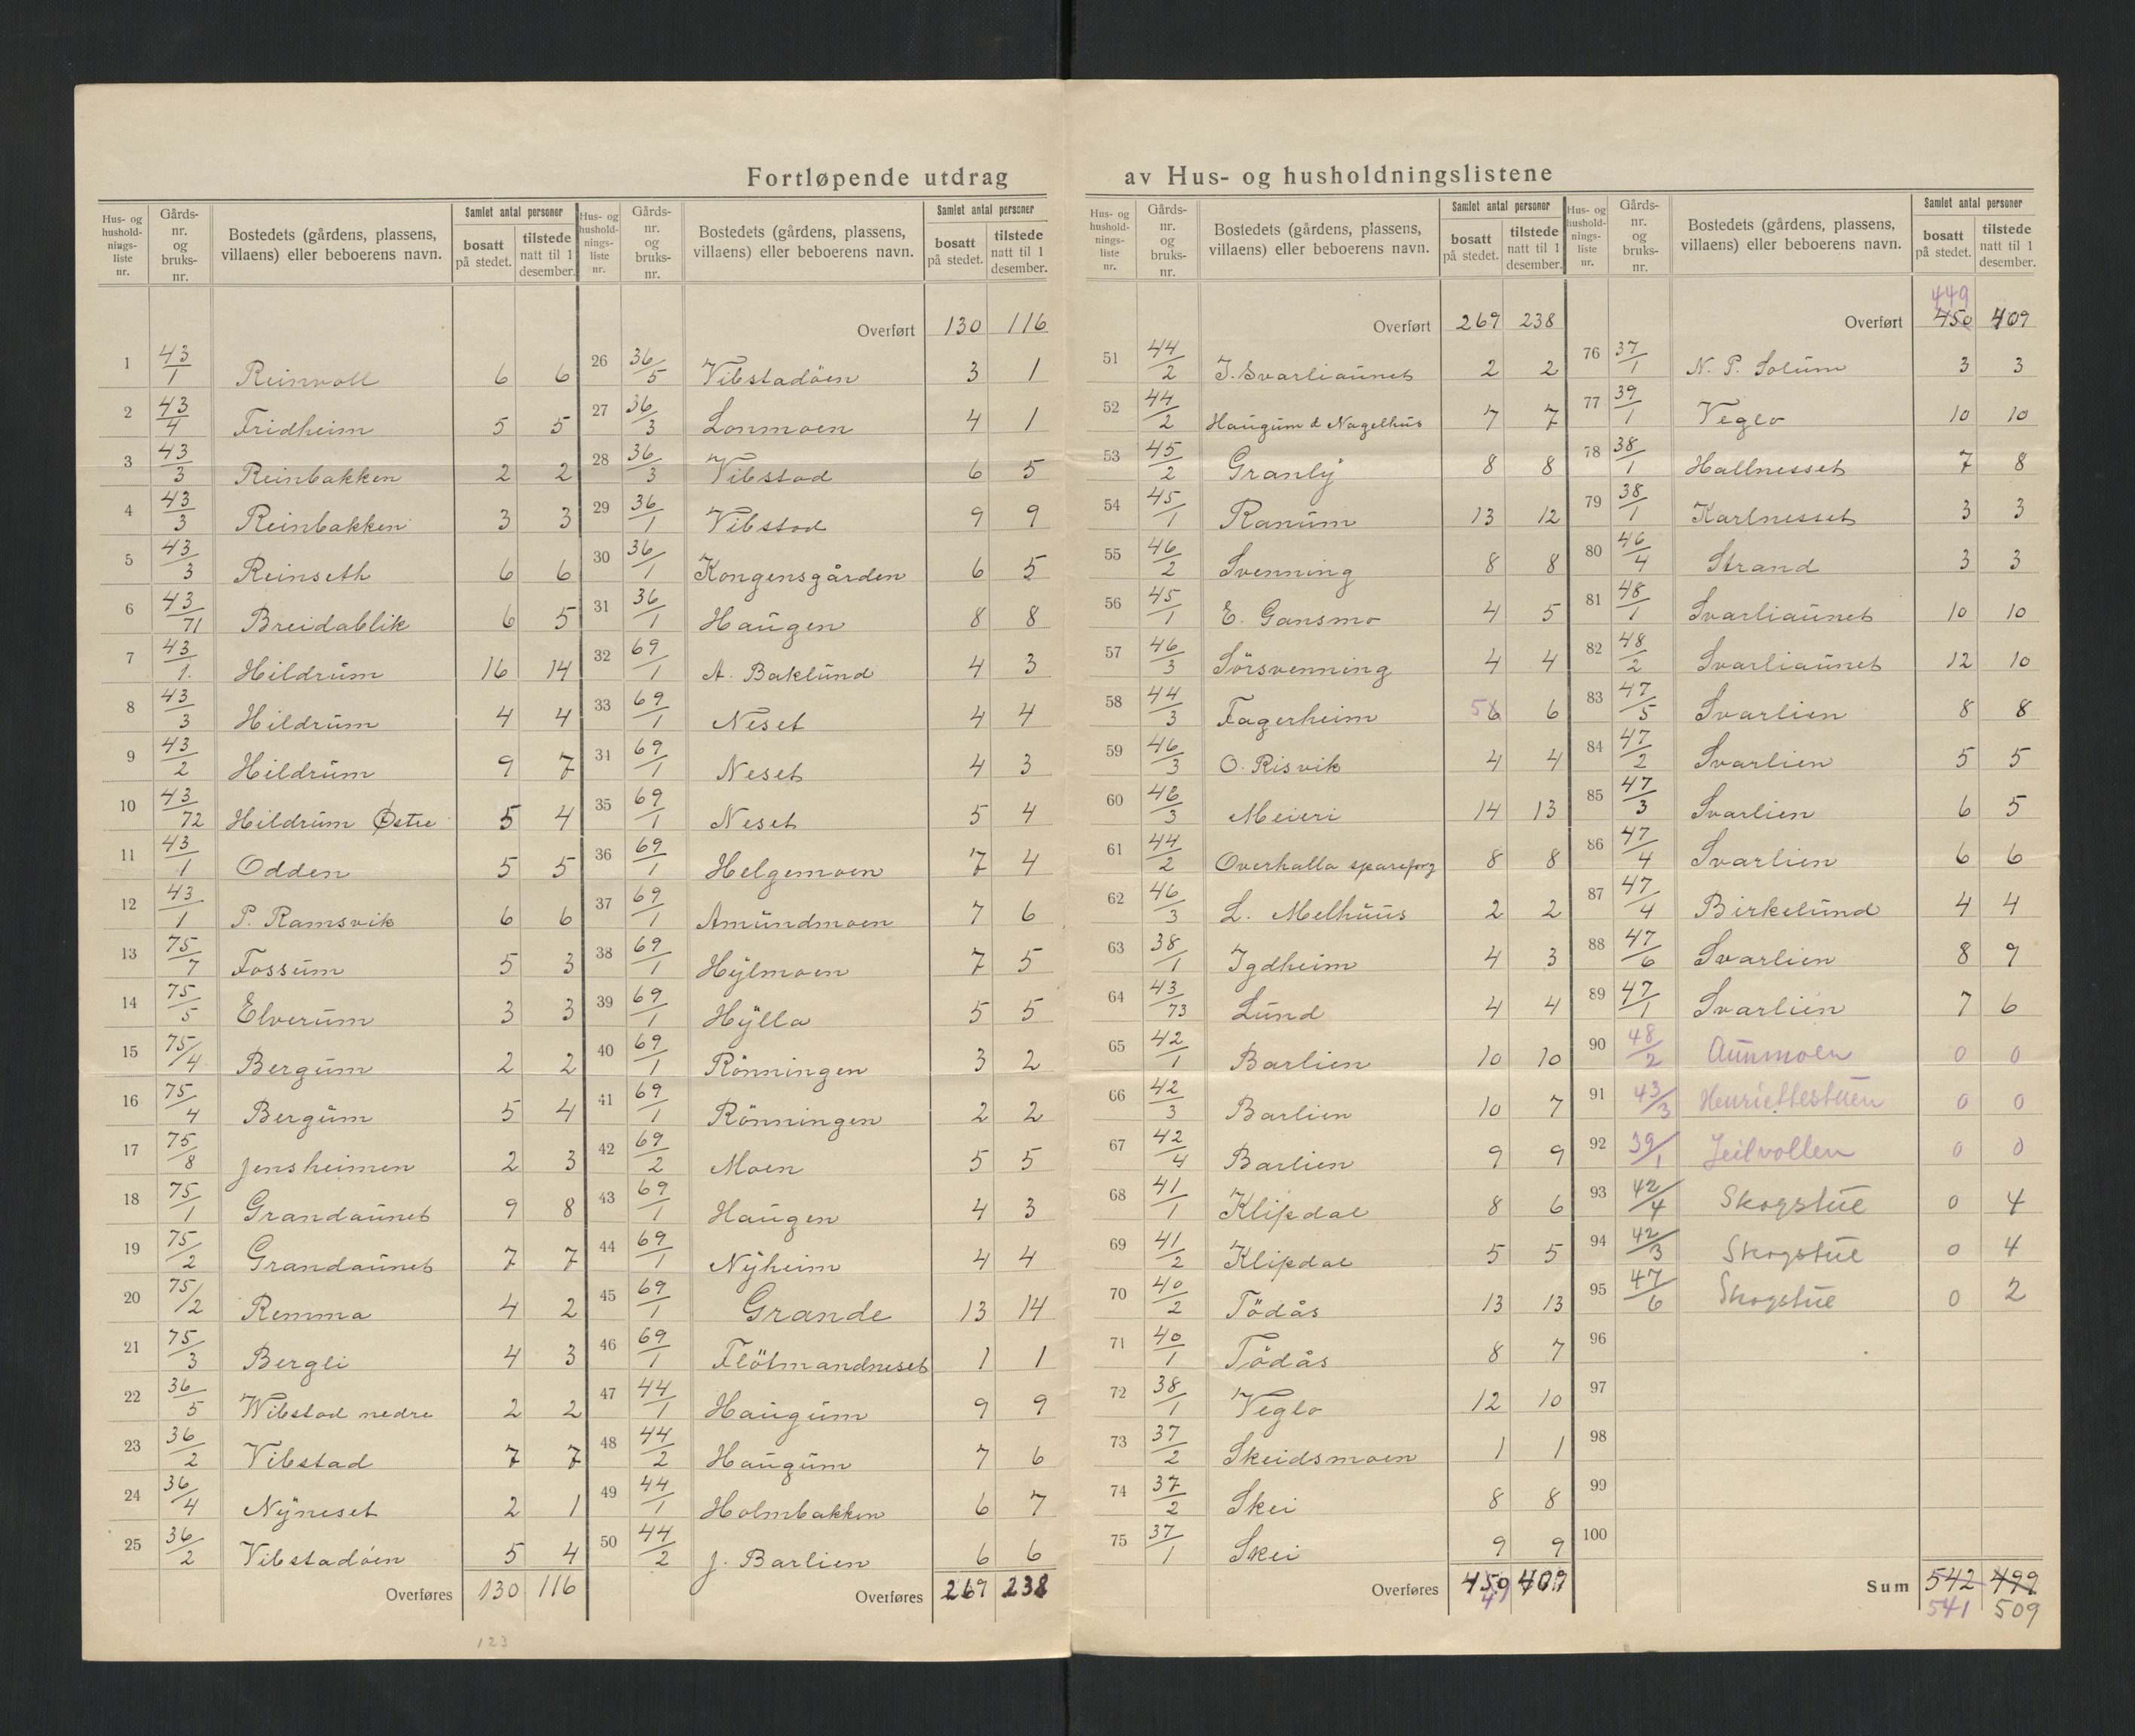 Fortløpende utdrag av Hus- og husholdningslistene
Hus- og husholdnings-liste nr. | Gårds-nr. og bruks-nr. | Bostedets (gårdens, plassens, villaens) eller beboerens navn. | Samlet antal personer | bosatt på stedet. | tilstede natt til 1 desember.
1 43/1 Reinvoll 6 6
2 43/4 Fridheim 5 5
3 43/3 Reinbakken 2 2
4 43/3 Reinbakken 3 3
5 43/3 Reinseth 6 6
6 43/71 Breidablik 6 5
7 43/1. Hildrum 16 14
8 43/3 Hildrum 4 4
9 43/2 Hildrum 9 7
10 43/72 Hildrum Østre 5 4
11 43/1 Odden 5 5
12 43/1 P. Ramsvik 6 6
13 75/7 Fossum 5 3
14 75/5 Elverum 3 3
15 75/4 Bergum 2 2
16 75/4 Bergum 5 4
17 75/8 Jensheimen 2 3
18 75/1 Grandaunet 9 8
19 75/2 Grandaunet 7 7
20 75/2 Remma 4 2
21 75/3 Bergli 4 3
22 36/5 Vibstad nedre 2 2
23 36/2 Vibstad 7 7
24 36/4 Nyneset 2 1
25 36/2 Vibstadöen 5 4
Overføres 130 116
123
Hus- og husholdnings-liste nr. | Gårds-nr. og bruks-nr. | Bostedets (gårdens, plassens, villaens) eller beboerens navn. | Samlet antal personer | bosatt på stedet. | tilstede natt til 1 desember.
Overført 130 116
26 36/5 Vibstadöen 3 1
27 36/3 Lonmoen 4 1
28 36/3 Vibstad 6 5
29 36/1 Vibstad 9 9
30 36/1 Kongensgården 6 5
31 36/1 Haugen 8 8
32 69/1 A. Baklund 4 3
33 69/1 Neset 4 4
31 69/1 Neset 4 3
35 69/1 Neset 5 4
36 69/1 Helgemoen 7 4
37 69/1 Amundmoen 7 6
38 69/1 Hylmoen 7 5
39 69/1 Hylla 5 5
40 69/1 Rönningen 3 2
41 69/1 Rönningen 2 2
42 69/2 Moen 5 5
43 69/1 Haugen 4 3
44 69/1 Nyheim 4 4
45 69/1 Grande 13 14
46 69/1 Flötmandneset 1 1
47 44/1 Haugum 9 9
48 44/2 Haugum 7 6
49 44/1 Holmbakken 6 7
50 44/2 J. Barlien 6 6
Overføres 269 238
Hus- og husholdnings-liste nr. | Gårds-nr. og bruks-nr. | Bostedets (gårdens, plassens, villaens) eller beboerens navn. | Samlet antal personer | bosatt på stedet. | tilstede natt til 1 desember.
Overført 269 238
51 44/2 J. Svarliaunet 2 2
52 44/2 Haugum d Nagelhus 7 7
53 45/2 Granly 8 8
54 45/1 Ranum 13 12
55 46/2 Svenning 8 8
56 45/1 E. Gansmo 4 5
57 46/3 Sörsvenning 4 4
58 44/3 Fagerheim 5 6 6
59 46/3 O. Risvik 4 4
60 46/3 Meieri 14 13
61 44/2 Overhalla spareforg 8 8
62 46/3 L. Melhuus 2 2
63 38/1 Igdheim 4 3
64 43/73 Lund 4 4
65 42/1 Barlien 10 10
66 42/3 Barlien 10 7
67 42/4 Barlien 9 9
68 41/1 Klipdal 8 6
69 41/2 Klipdal 5 5
70 40/2 Tödås 13 13
71 40/1 Tödås 8 7
72 38/1 Veglo 12 10
73 37/2 Skeidsmoen 1 1
74 37/2 Skei 8 8
75 37/1 Skei 9 9
Overføres 450 409
Hus- og husholdnings-liste nr. | Gårds-nr. og bruks-nr. | Bostedets (gårdens, plassens, villaens) eller beboerens navn. | Samlet antal personer | bosatt på stedet. | tilstede natt til 1 desember.
449
Overført 450 409
76 37/1 N. P. Solum 3 3
77 39/1 Veglo 10 10
78 38/1 Hallnesset 7 8
79 38/1 Karlnesset 3 3
80 46/4 Strand 3 3
81 48/1 Svarliaunet 10 10
82 48/2 Svarliaunet 12 10
83 47/5 Svarlien 8 8
84 47/2 Svarlien 5 5
85 47/3 Svarlien 6 5
86 47/4 Svarlien 6 6
87 47/4 Birkelund 4 4
88 47/6 Svarlien 8 9
89 47/1 Svarlien 7 6
90 48/2 Aunmoen 0 0
91 43/3 Henriettestuen 0 0
92 39/1 Jeilvollen 0 0
93 42/4 Skogstue 0 4
94 42/3 Skogstue 0 4
95 47/6 Skogstue 0 2
96
97
98
99
100
Sum 542 499
541 509